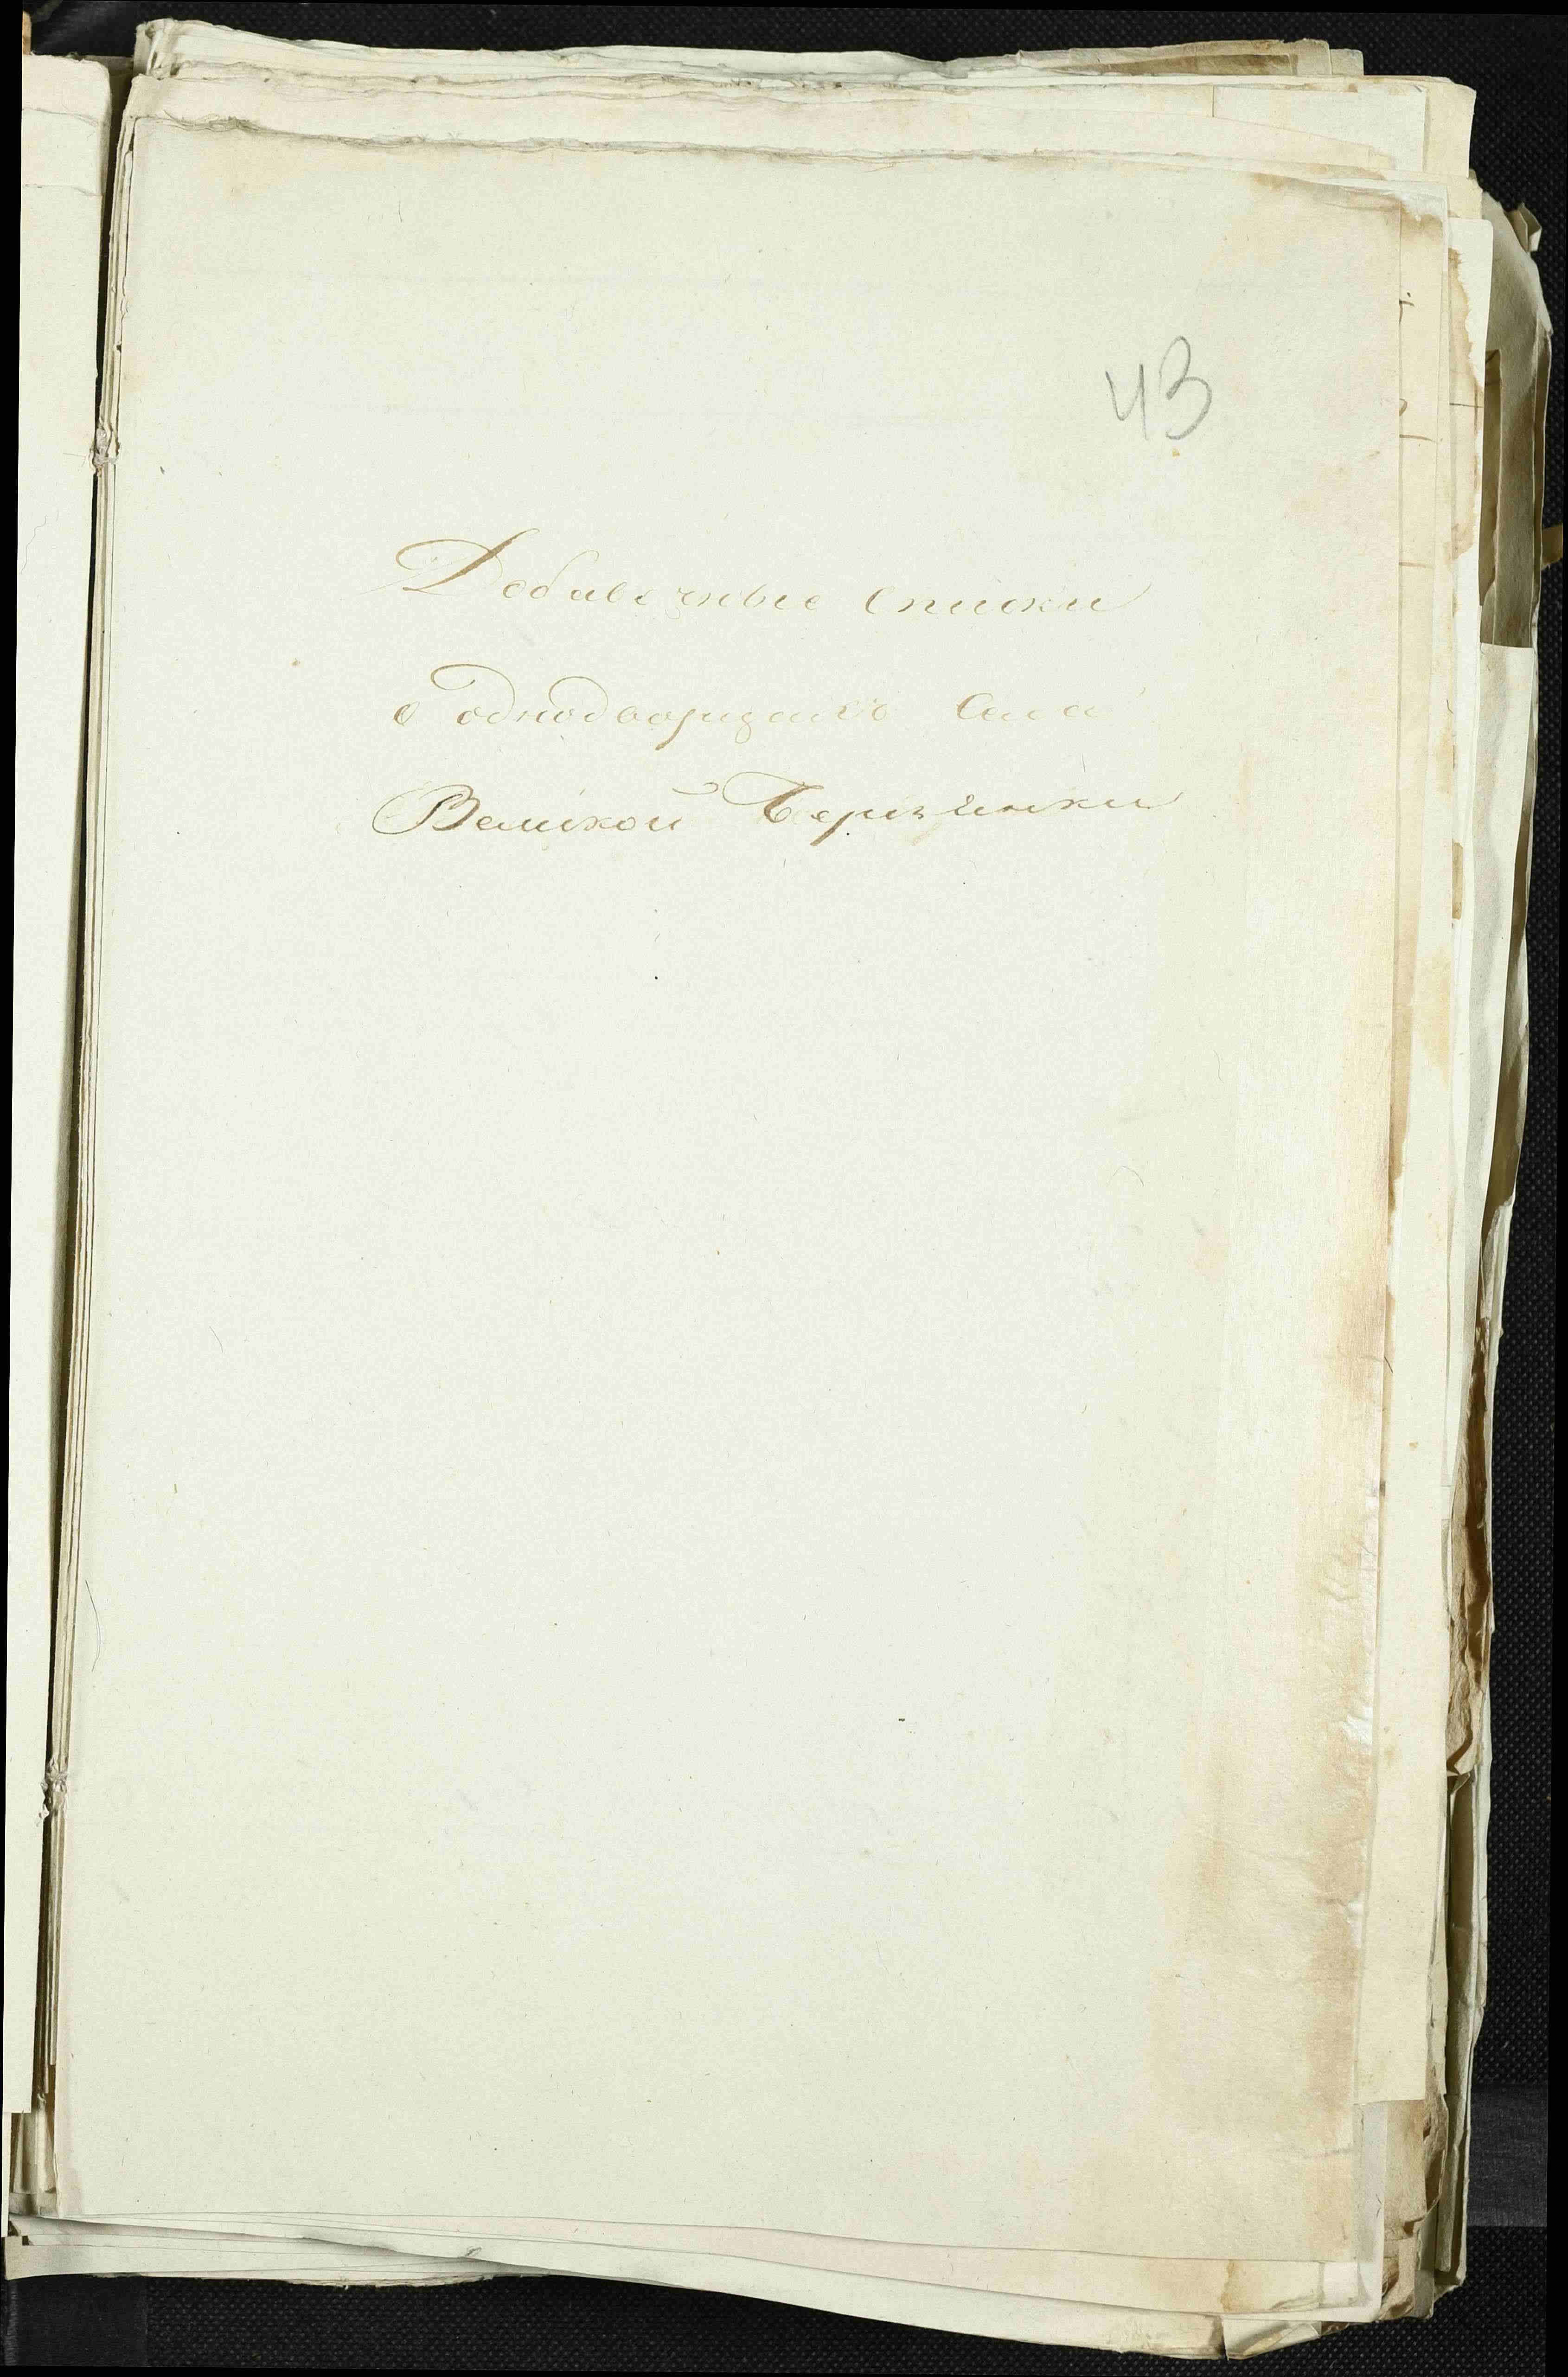 43
Добавочные списки
о однодворцахъ села
Великой Березянки